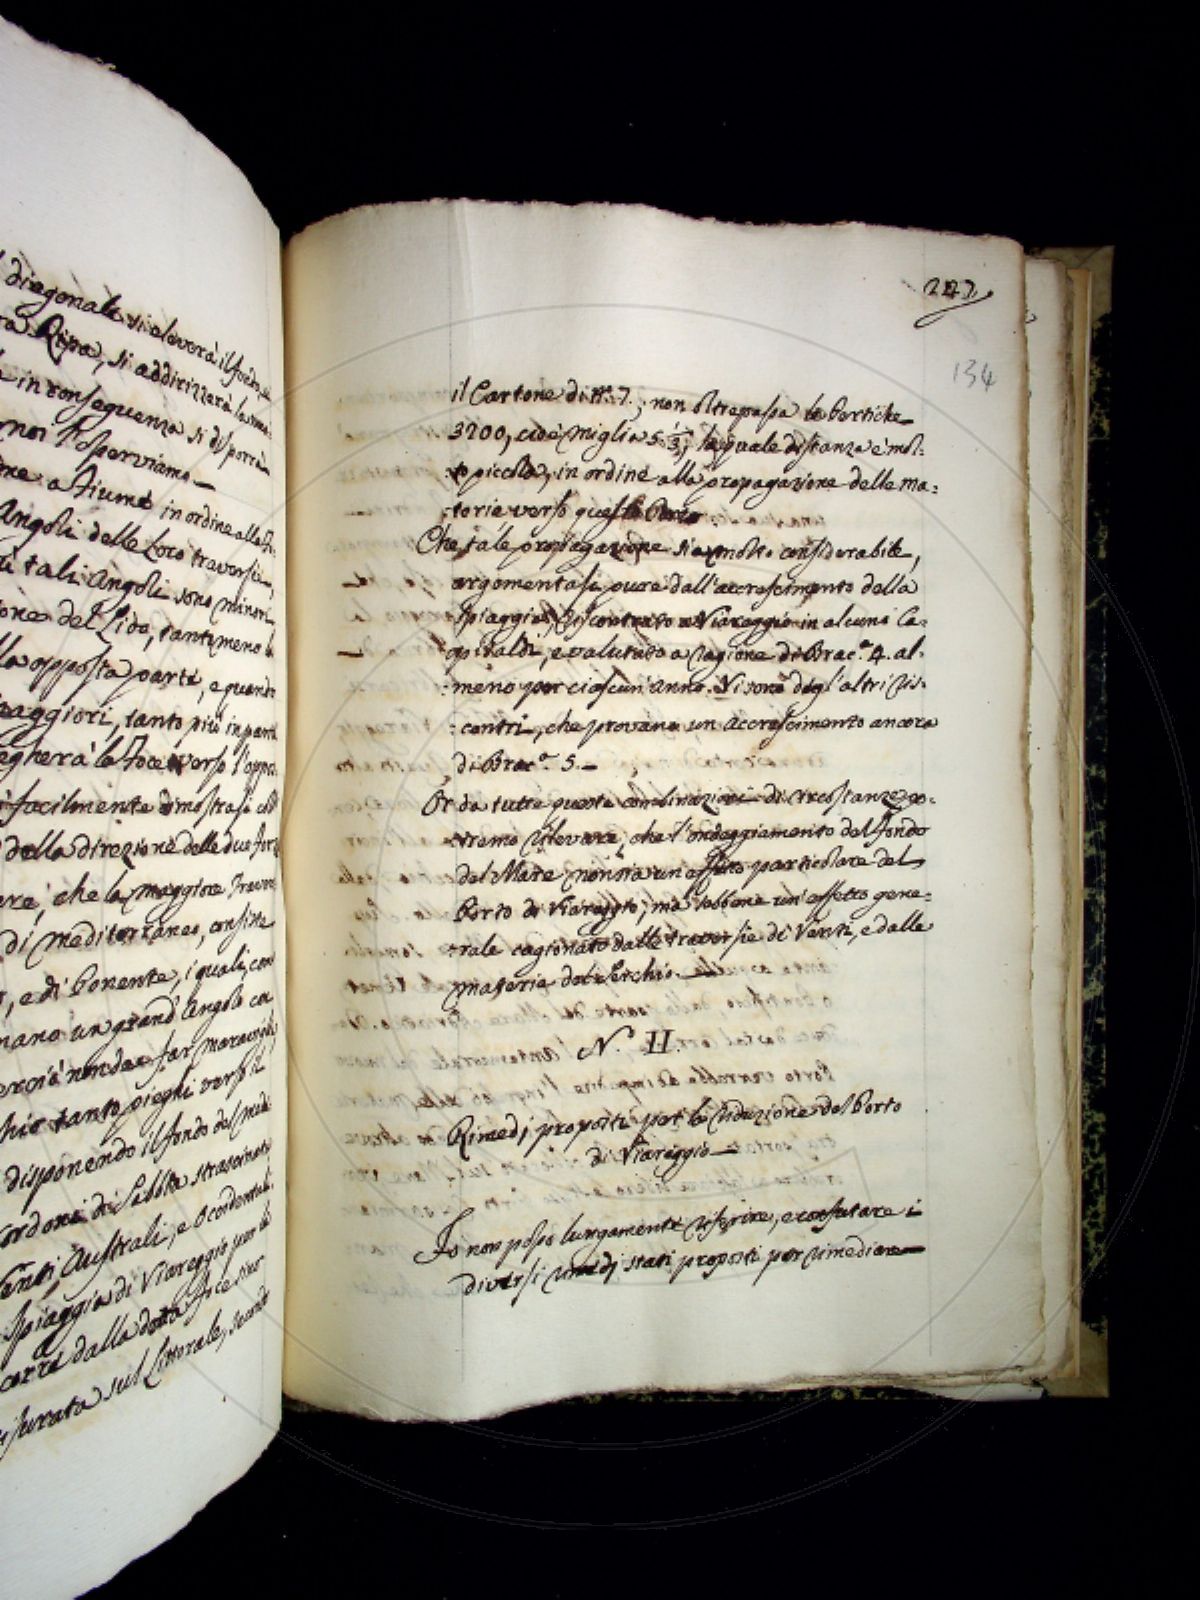 diagonale si eleverà il fondo, e
Ripa, si addirizzerà la
in conseguenza si disporrà
noi l'osserviamo
a Fiume in ordine alla
Angoli delle Loro traversie,
tali Angoli sono minori
del Lido, tantomeno
opposta parte, e quando
maggiori, tanto più in parte
la Foce verso l'oppo
facilmente dimostrasi coll
della direzione delle due forz
che la maggiore Traver
di mediterraneo, consiste
e di Ponente, i quali con
un grand'Angolo co
non dee far maraviglia
tanto pieghi verso il
disponendo il fondo del med
Cordoni di Sabbia strascinata
Venti Australi, e Occidentali
Spiaggia di Viareggio per la
dalla detta Foce sino
misurata sul Littorale, secondo
247
134
il Cartone di n.° 7., non oltrepassa le Pertiche
3200, cioè Miglia 5 1/3, la quale distanza è mol:
:to piccola, in ordine alla propagazione delle ma:
:terie verso questo Porto
Che tale propagazione sia molto considerabile,
argomentasi pure dall'accrescimento della
Spiaggia, riscontrato a Viareggio in alcuni Ca:
:pisaldi, e valutato a ragione di Brac.ª 4. al:
:meno per ciascun'anno. Vi sono degl'altri ris:
:contri, che provano un accrescimento ancora
di Brac.ª 5.
Or da tutte queste combinazioni di circostanze po:
:tremo rilevare, che l'ondeggiamento del fondo
del Mare non sia un effetto particolare del
Porto di Viareggio, ma sebbene un'effetto gene:
:rale cagionato dalle traversie di Venti, e dalle
materie del Serchio.
N.° II.
Rimedj proposti per la riduzione del Porto
di Viareggio
Io non posso lungamente riferire, e confutare i
diversi rimedj stati proposti per rimediare